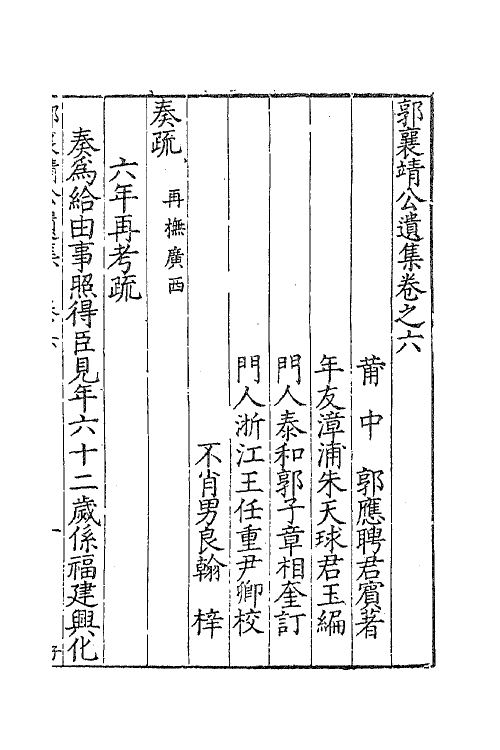 郭襄靖公遺集卷之六
莆中 郭應聘君賓著
年友漳浦朱天球君玉編
門人泰和郭子章相奎訂
門人浙江王任重尹卿校
不肖男良翰 梓
奏疏 再撫廣西
六年再考疏
奏爲給由事照得臣見年六十二歲係福建興化
郭襄靖公遺集 卷六 一